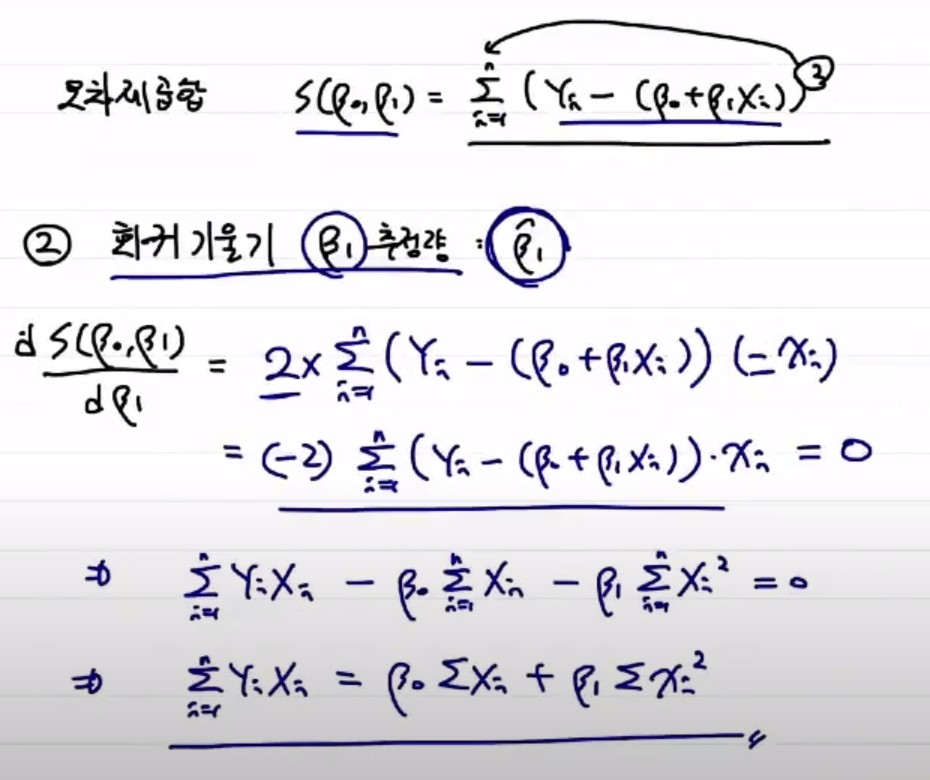 오차제곱합 S(β₀,β₁) = Σᵢ₌₁ⁿ (Yᵢ − (β₀+β₁Xᵢ))²
② 회귀기울기 β₁ 추정량 : β̂₁
dS(β₀,β₁)/dβ₁ = 2× Σᵢ₌₁ⁿ (Yᵢ − (β₀+β₁Xᵢ)) (−Xᵢ)
= (−2) Σᵢ₌₁ⁿ (Yᵢ − (β₀+β₁Xᵢ))·Xᵢ = 0
⇒ Σᵢ₌₁ⁿ YᵢXᵢ − β₀ Σᵢ₌₁ⁿ Xᵢ − β₁ Σᵢ₌₁ⁿ Xᵢ² = 0
⇒ Σᵢ₌₁ⁿ YᵢXᵢ = β₀ ΣXᵢ + β₁ ΣXᵢ²